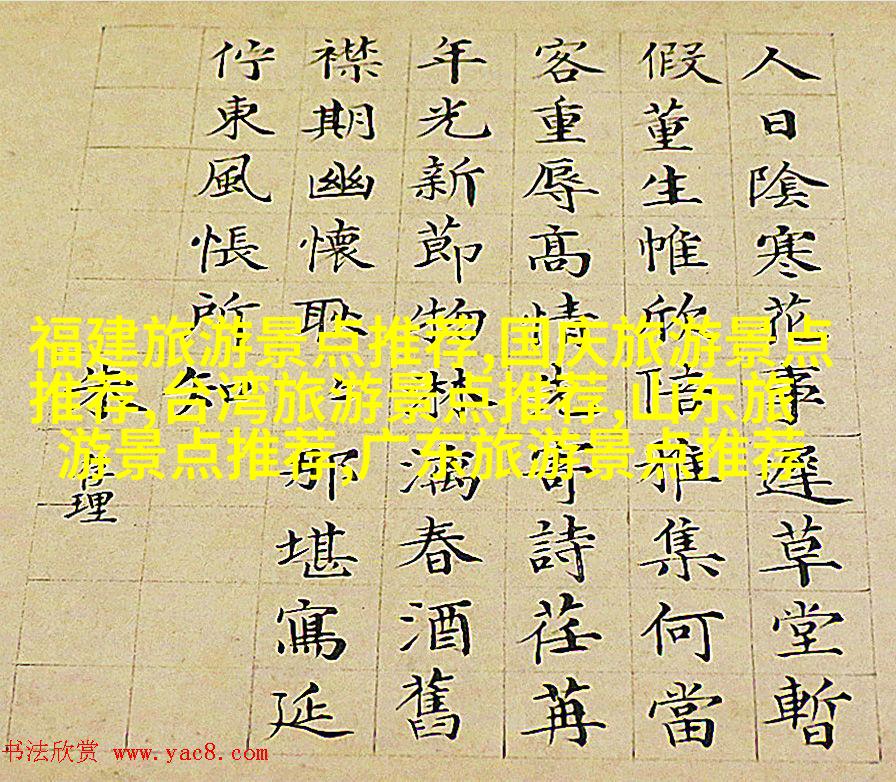 人日陰寒花事遲草堂暫
假董生帷欣陪雅集何當
客重辱高情寄詩荏苒
年光新節物淋漓春酒舊
襟期幽懷恥那堪寫延
佇東風悵所知
理
福建旅游景点推荐,国庆旅游景点
推荐,台湾旅游景点推荐,山东旅
游景点推荐,广东旅游景点推荐
书法欣赏 www.yac8.com